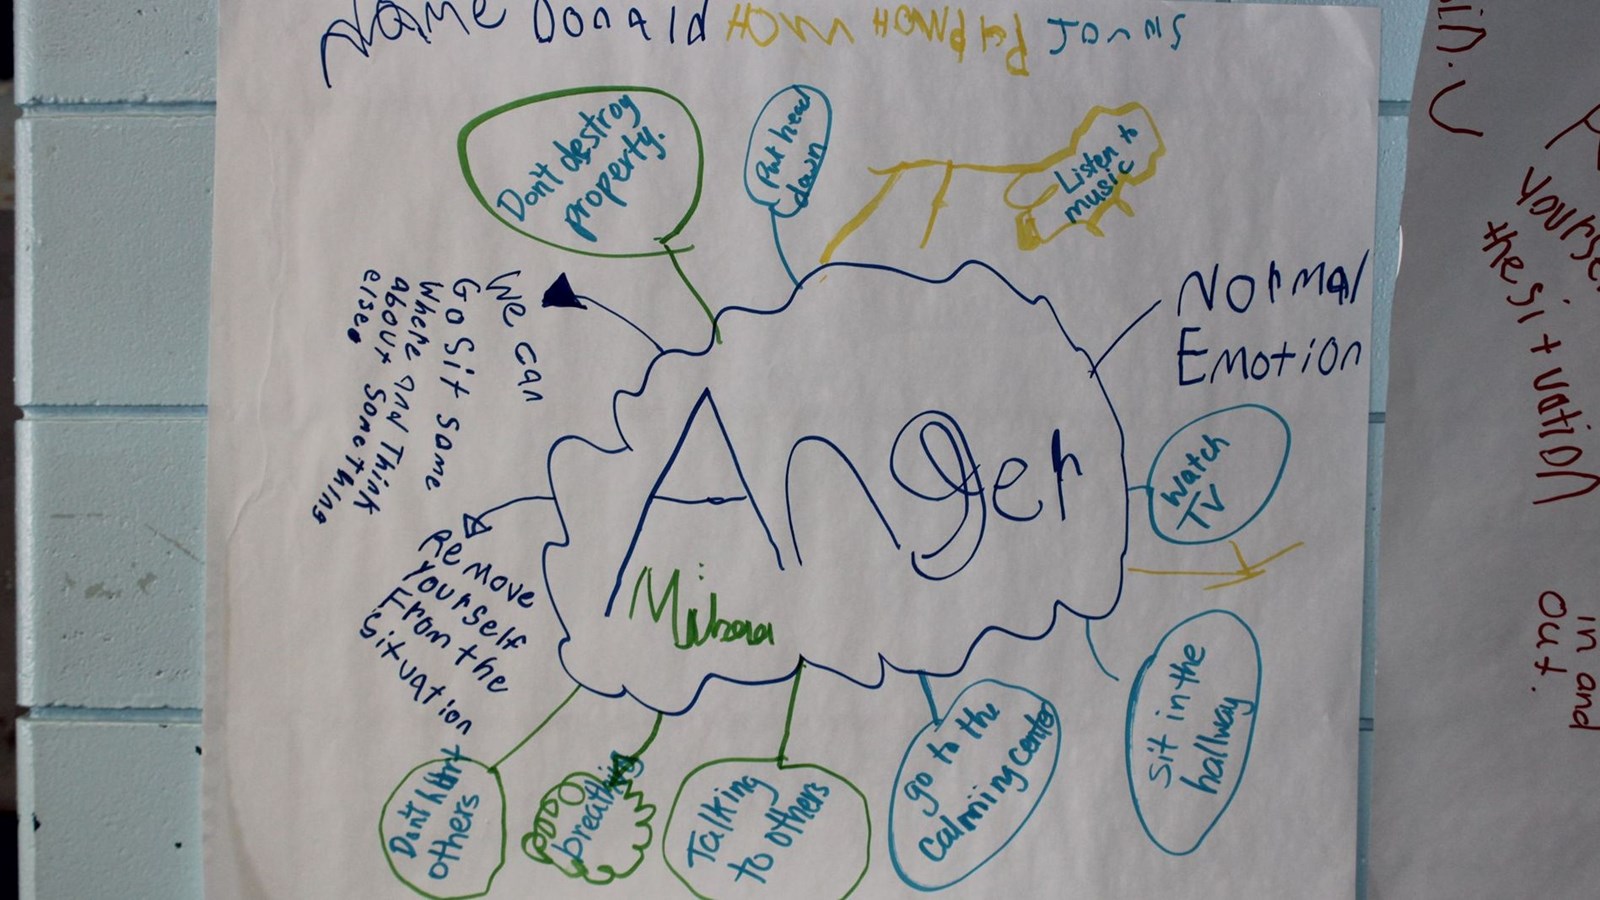 Name Donald
Jonas
Don't destroy
property.
Put head
down
Listen to
music
Normal
Emotion
We can
Go Sit Some
where and Think
about Something
else.
Anger
Watch
TV
Remove
Yourself
From the
Situation
Sit in the
hallway
go to the
Calmiing center
Talking
to others
breathing
Don't hurt
others
yourse
the situation
in and
out.